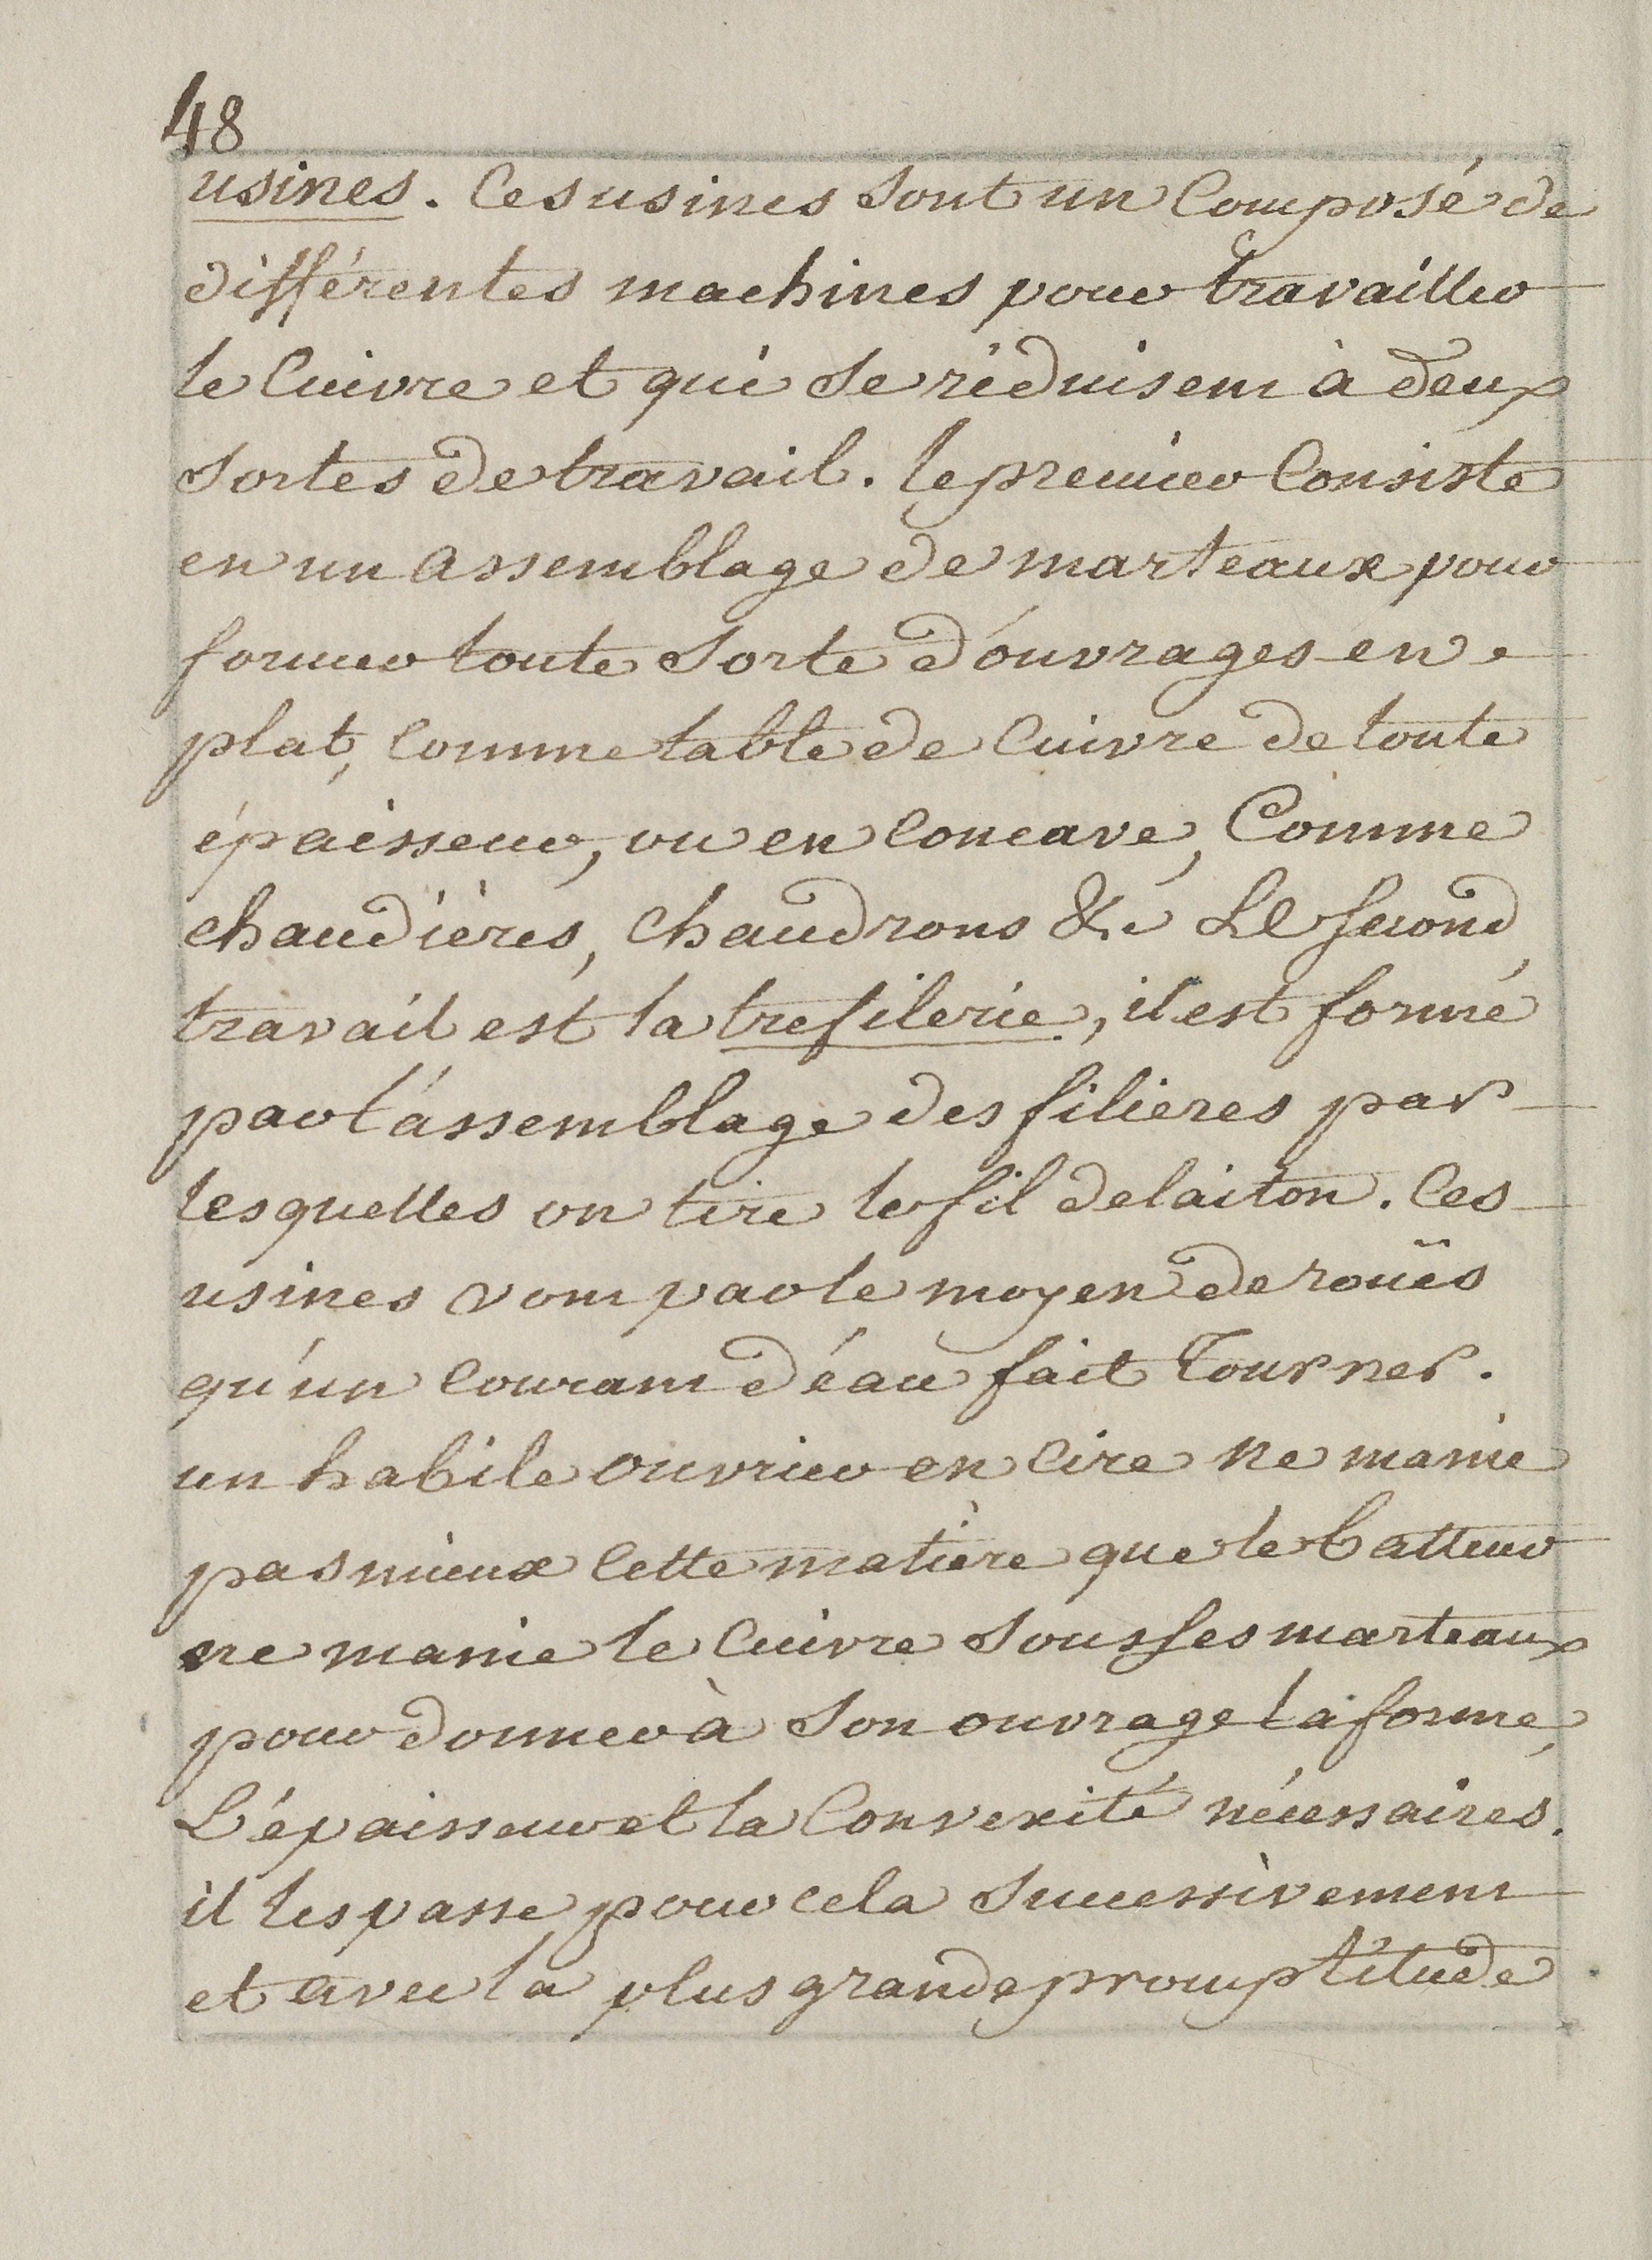 48
usines. Ces usines sont un Composé de
différentes machines pour travailler
le Cuivre et qui se réduisent à deux
sortes de travail. le premier Consiste
en un assemblage de marteaux pour
former toute sorte d'ouvrages en
plat, comme table de Cuivre de toute
épaisseur, ou en concave, Comme
chaudières, chaudrons &c. Le second
travail est la trefilerie, il est formé
par l'assemblage des filieres par
lesquelles on tire le fil de laiton. Ces
usines vont par le moyen de rouës
qu'un courant d'eau fait Tourner.
un habile ouvrier en cire ne manie
pas mieux cette matière que le batteur
ne manie le Cuivre sous ses marteaux
pour donner à son ouvrage la forme,
L'épaisseur et la Convexité nécessaires.
il les passe pour cela successivement
et avec la plus grande promptitude